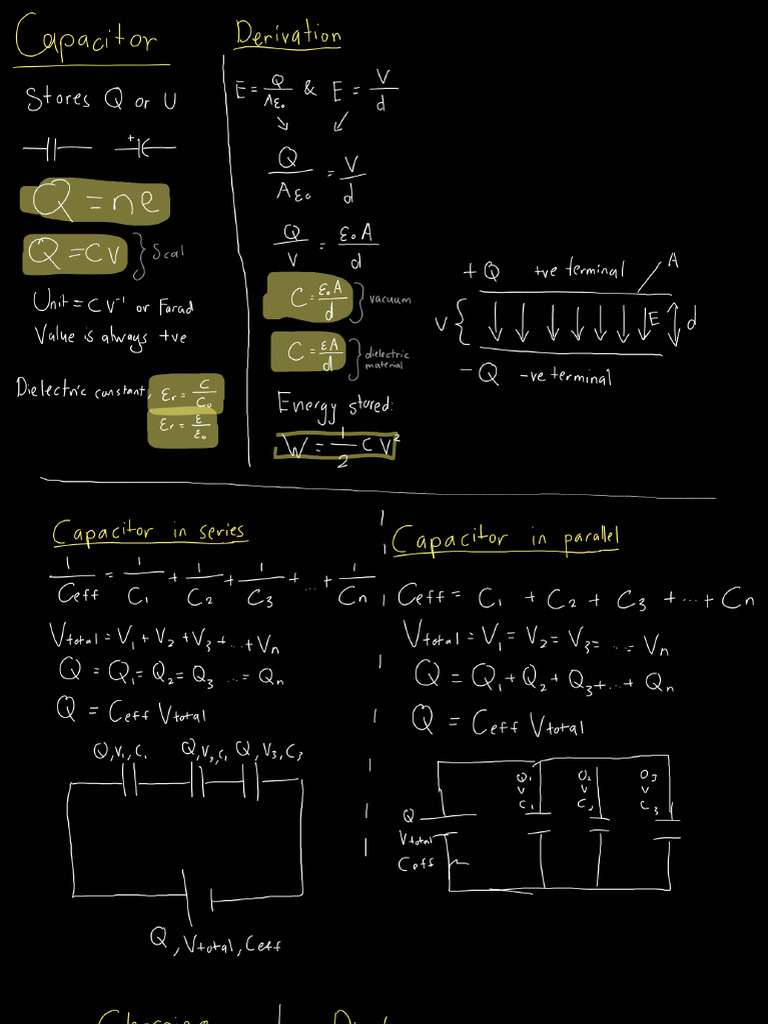 Capacitor
Stores Q or U
+
Q = ne
Q = CV } Scal
Unit = C V⁻¹ or Farad
Value is always +ve
Dielectric constant, εr = C/C₀
εr = ε/ε₀
Derivation
E = Q/Aε₀ & E = V/d
Q/Aε₀ = V/d
Q/V = ε₀A/d
C = ε₀A/d } vacuum
C = εA/d } dielectric material
Energy stored:
W = 1/2 CV²
+Q +ve terminal A
V { E d
-Q -ve terminal
Capacitor in series
1/Ceff = 1/C₁ + 1/C₂ + 1/C₃ + ... + 1/Cn
Vtotal = V₁ + V₂ + V₃ + ... + Vn
Q = Q₁ = Q₂ = Q₃ ... = Qn
Q = Ceff Vtotal
Q, V₁, C₁ Q, V₂, C₁ Q, V₃, C₃
Q, Vtotal, Ceff
Capacitor in parallel
Ceff = C₁ + C₂ + C₃ + ... + Cn
Vtotal = V₁ = V₂ = V₃ = ... = Vn
Q = Q₁ + Q₂ + Q₃ + ... + Qn
Q = Ceff Vtotal
Q₁ Q₂ Q₃
V V V
C₁ C₂ C₃
Q
Vtotal
Ceff